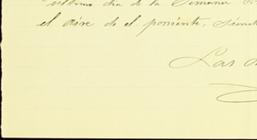 ultimo dia de la Semana
el aire de el poniente,
Las